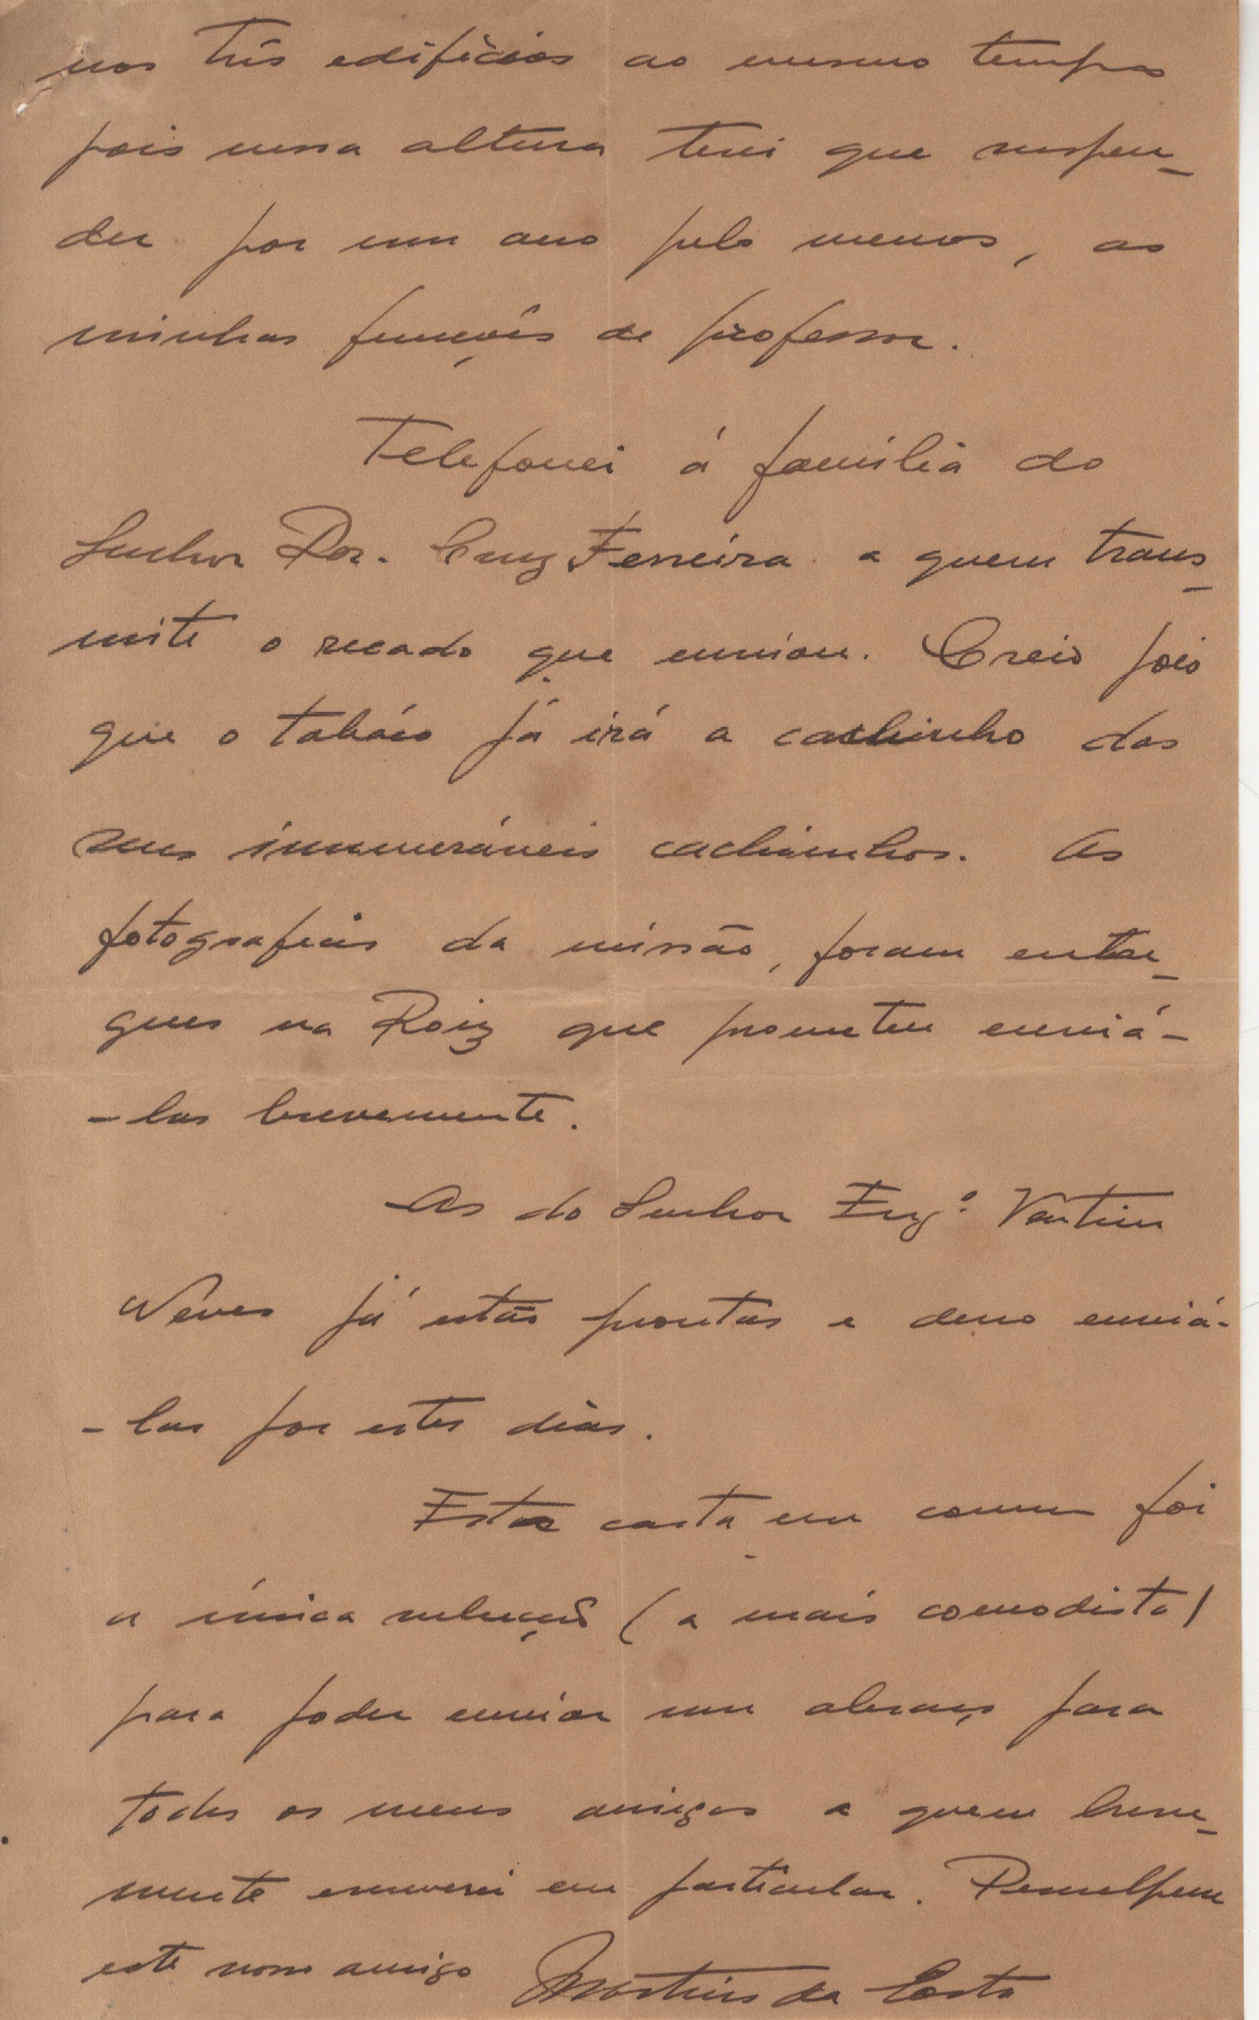 nos três edifícios ao mesmo tempo
pois nessa altura terei que suspen-
der por um ano pelo menos, as
minhas funções de professor.
Telefonei á família do
Senhor Dor. Cruz Ferreira a quem trans-
mite o recado que enviou. Creio pois
que o tabáco já irá a caminho dos
seus inumeráveis cachimbos. As
fotografias da missão, foram entre-
gues na Roiz que prometeu enviá-
-las brevemente.
As do Senhor Engº. Ventim
Neves já estão prontas e devo enviá-
-las por estes dias.
Esta carta em comum foi
a única solução (a mais comodista)
para poder enviar um abraço para
todos os meus amigos a quem breve-
mente escreverei em particular. Desculpem
este nosso amigo Martins da Costa